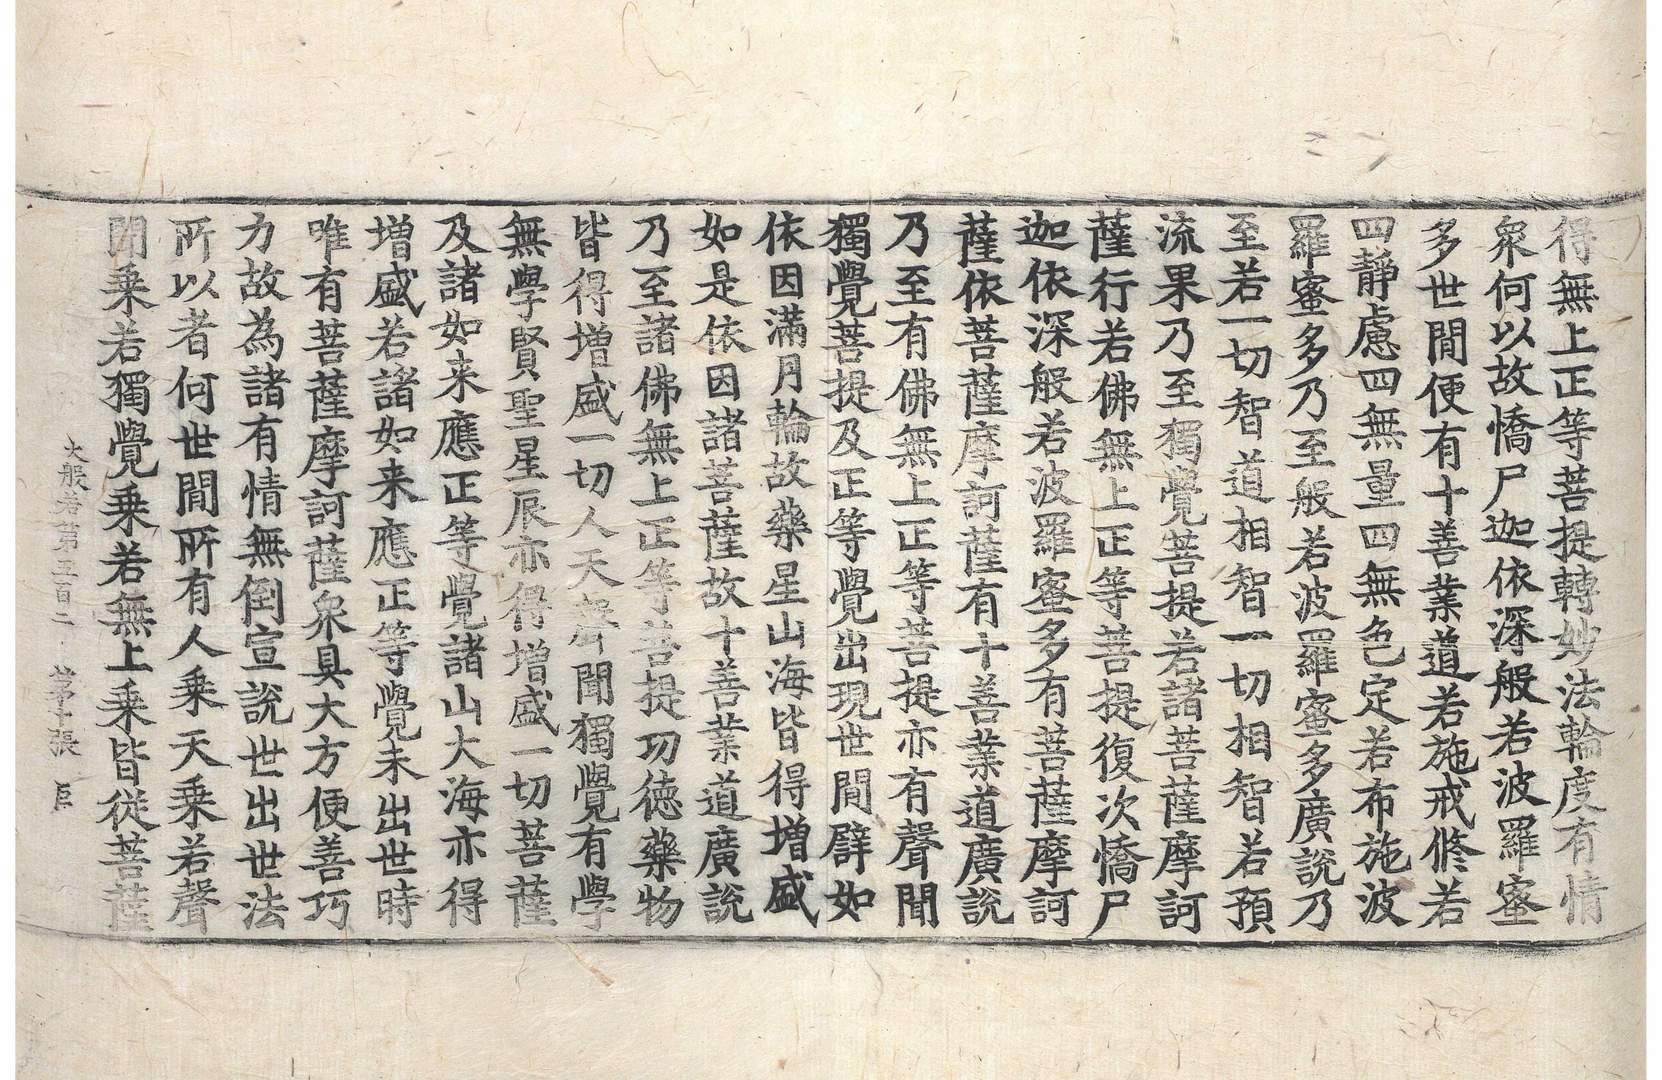 得無上正等菩提轉妙法輪度有情
衆何以故憍尸迦依深般若波羅蜜
多世間便有十善業道若施戒修若
四靜慮四無量四無色定若布施波
羅蜜多乃至般若波羅蜜多廣說乃
至若一切智道相智一切相智若預
流果乃至獨覺菩提若諸菩薩摩訶
薩行若佛無上正等菩提復次憍尸
迦依深般若波羅蜜多有菩薩摩訶
薩依菩薩摩訶薩有十善業道廣說
乃至有佛無上正等菩提亦有聲聞
獨覺菩提及正等覺出現世間譬如
依因滿月輪故藥星山海皆得增盛
如是依因諸菩薩故十善業道廣說
乃至諸佛無上正等菩提功德藥物
皆得增盛一切人天聲聞獨覺有學
無學賢聖星辰亦得增盛一切菩薩
及諸如来應正等覺諸山大海亦得
增盛若諸如来應正等覺未出世時
唯有菩薩摩訶薩衆具大方便善巧
力故為諸有情無倒宣說世出世法
所以者何世間所有人乘天乘若聲
聞乘若獨覺乘若無上乘皆從菩薩
大般若第五百二 第十張 臣